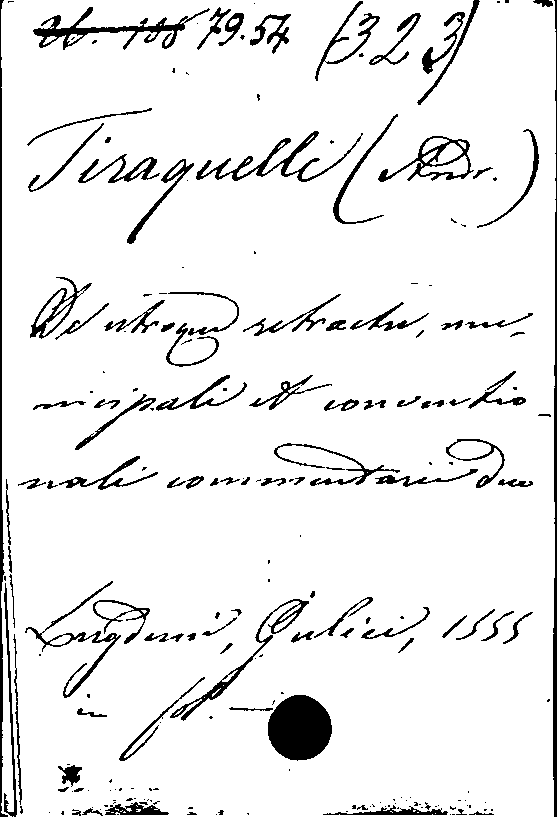 79.54 (3.23)
Tiraquelli (Andr.)
De utroque retractu, mu-
nicipali et conventio-
nali commentarii duo
Lugduni, Gulici, 1555
in fol. —